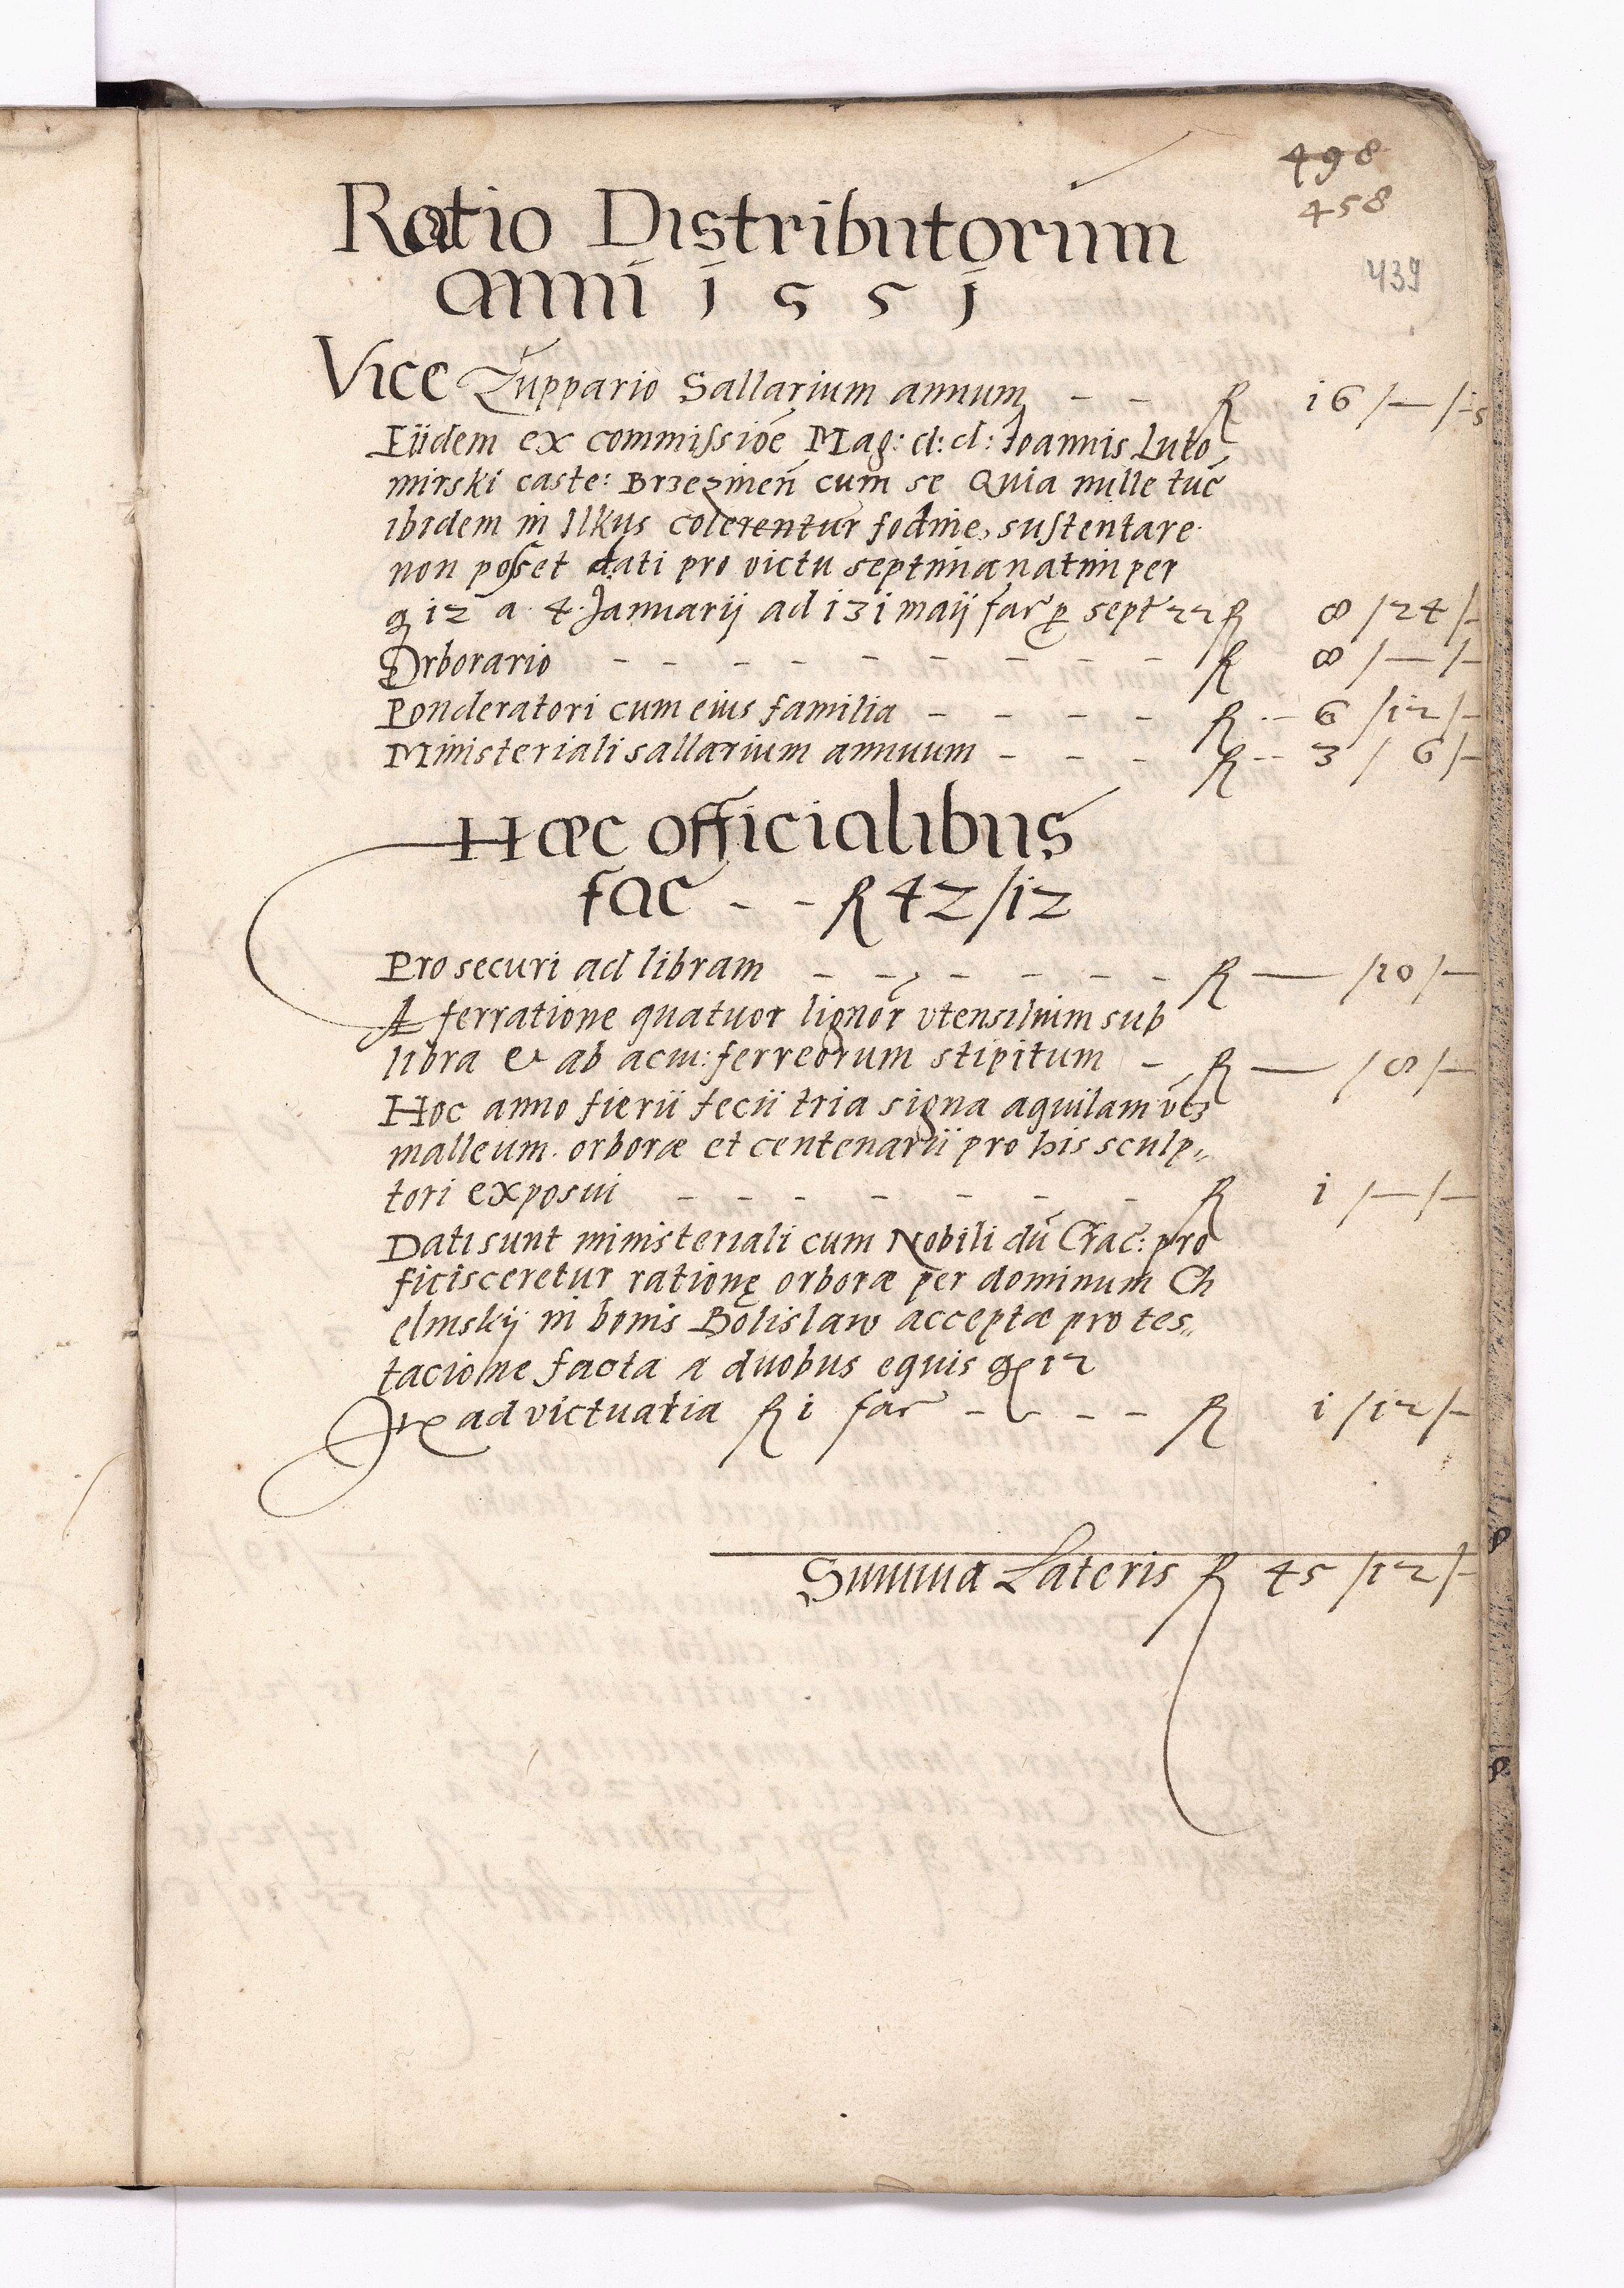 498
458
439
Ratio Distributorum
anni 1551
Vice Zuppario Sallarium annum - - R 16 /—/-
Eiidem ex commissioē Mag: d: d: Joannis Luto
mirski caste: Brzezineñ cum se Quia nulle tūc
ibidem in Ilkus colerentur fodine, sustentare
non posset dati pro victu septimanatim per
g 12 a 4 Januarij ad 131 maij fac̄ septᵃ 22 R 8 /24/-
Orborario - - - - - - - - - R 8 /—/-
Ponderatori cum eius familia - - - - R -- 6 /12/-
Ministeriali sallarium annuum - - - R -- 3 / 6/-
Hæc officialibus
fac̄ - - R 42/12
Pro securi ad libram - - - - - - - R — /20/-
A ferratione quatuor lignor̄ vtensilium sub
libra & ab acui: ferreorum stipitum - R — /8/-
Hoc anno fierii fecii tria signa aquilam vc̄z
malleum orboræ et centenarii pro his sculp„
tori exposui - - - - - - - R 1 /—/-
Dati sunt ministeriali cum Nobili dū Crac: pro
ficisceretur rationę orboræ per dominum Ch
ęlmskij in bonis Bolislaw acceptæ pro tes„
tacione facta a duobus equis g 12
Itē ad victualia R 1 fac̄ - - - - R 1 /12/-
Summa Lateris R 45 /12/-